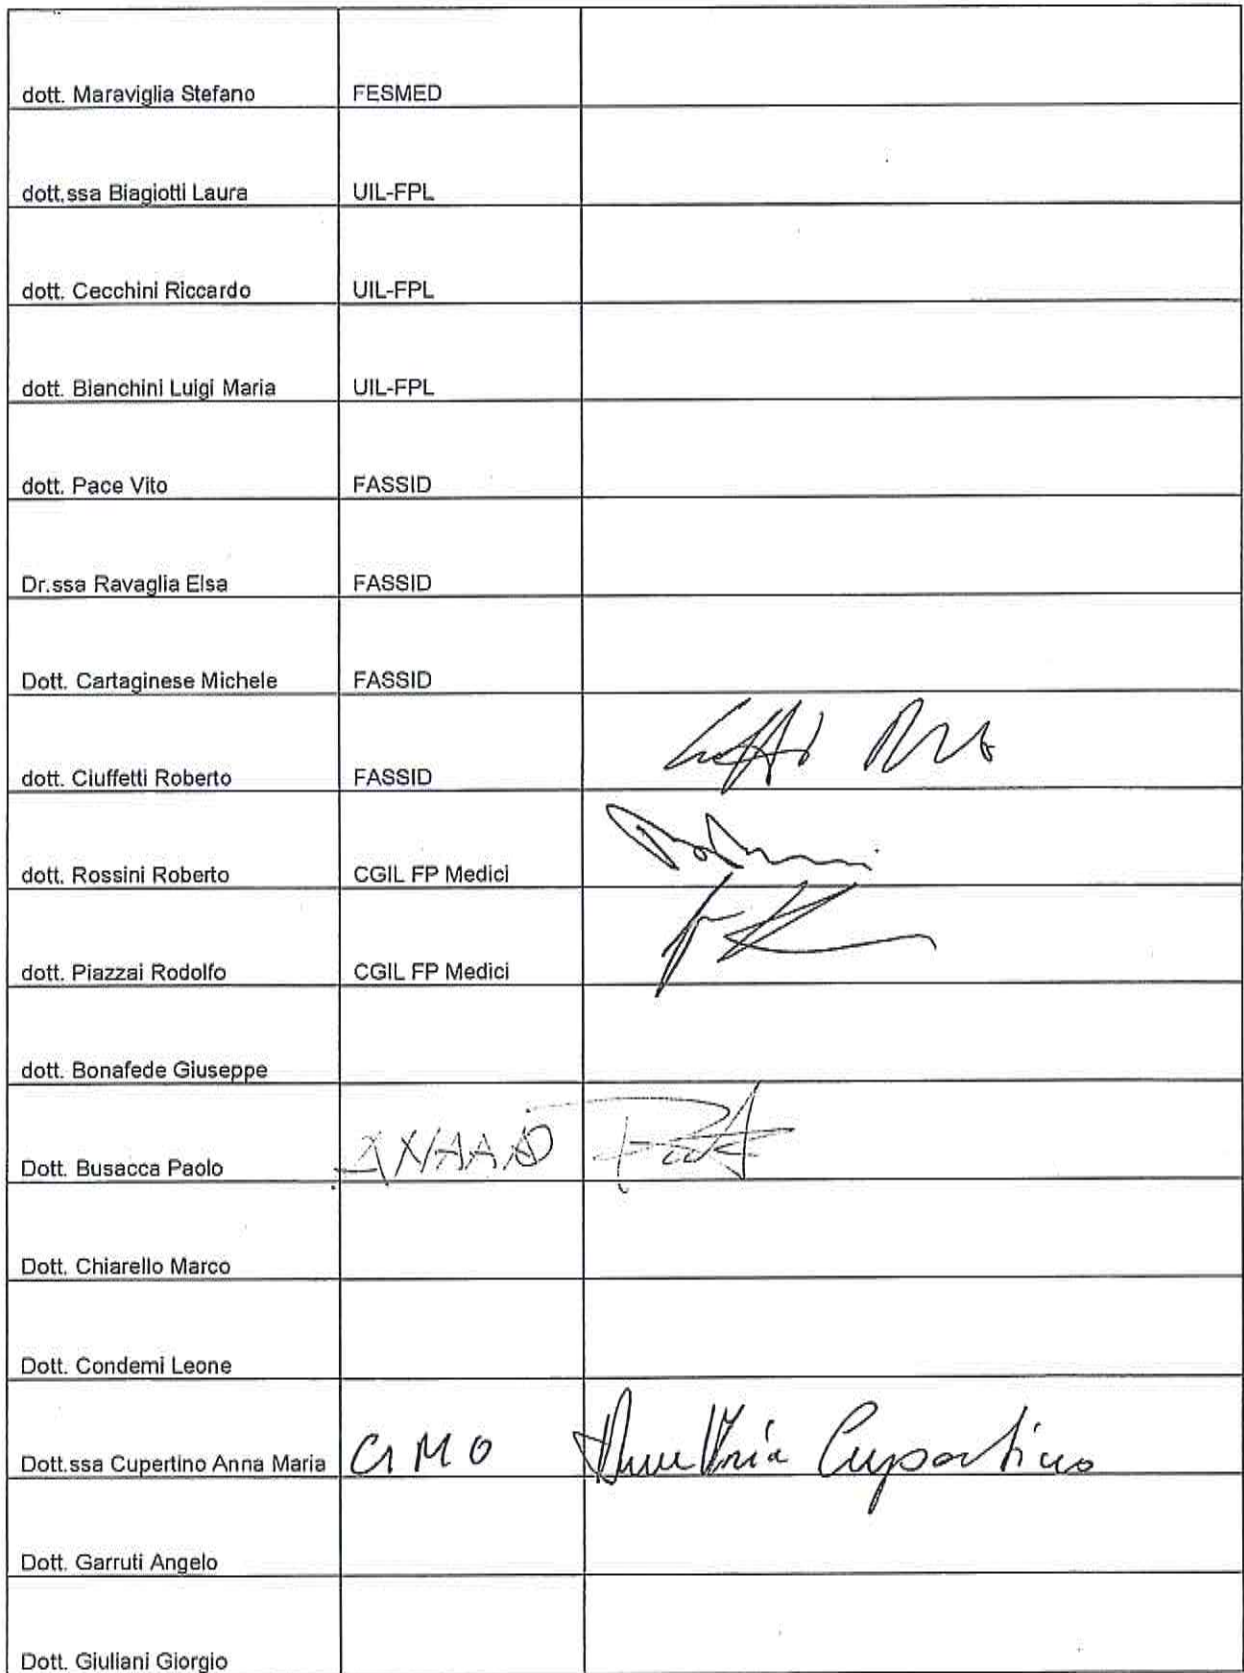 dott. Maraviglia Stefano FESMED
dott.ssa Biagiotti Laura UIL-FPL
dott. Cecchini Riccardo UIL-FPL
dott. Bianchini Luigi Maria UIL-FPL
dott. Pace Vito FASSID
Dr.ssa Ravaglia Elsa FASSID
Dott. Cartaginese Michele FASSID
dott. Ciuffetti Roberto FASSID
dott. Rossini Roberto CGIL FP Medici
dott. Piazzai Rodolfo CGIL FP Medici
dott. Bonafede Giuseppe
Dott. Busacca Paolo
Dott. Chiarello Marco
Dott. Condemi Leone
Dott.ssa Cupertino Anna Maria CIMO Anna Maria Cupertino
Dott. Garruti Angelo
Dott. Giuliani Giorgio